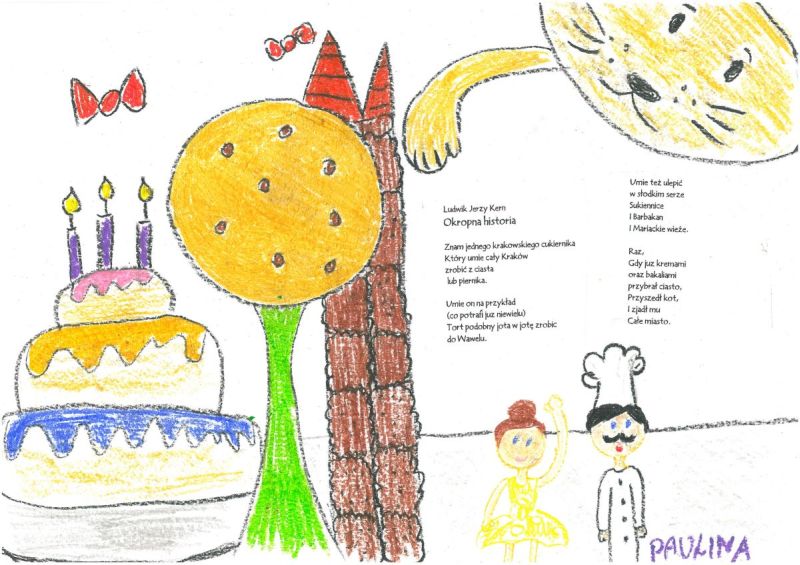 Ludwik Jerzy Kern
Okropna historia
Znam jednego krakowskiego cukiernika
Który umie cały Kraków
zrobić z ciasta
lub piernika.
Umie on na przykład
(co potrafi juz niewielu)
Tort podobny jota w jotę zrobic
do Wawelu.
Umie też ulepić
w słodkim serze
Sukiennice
I Barbakan
I Mariackie wieże.
Raz,
Gdy juz kremami
oraz bakaliami
przybrał ciasto,
Przyszedł kot,
I zjadł mu
Całe miasto.
PAULINA